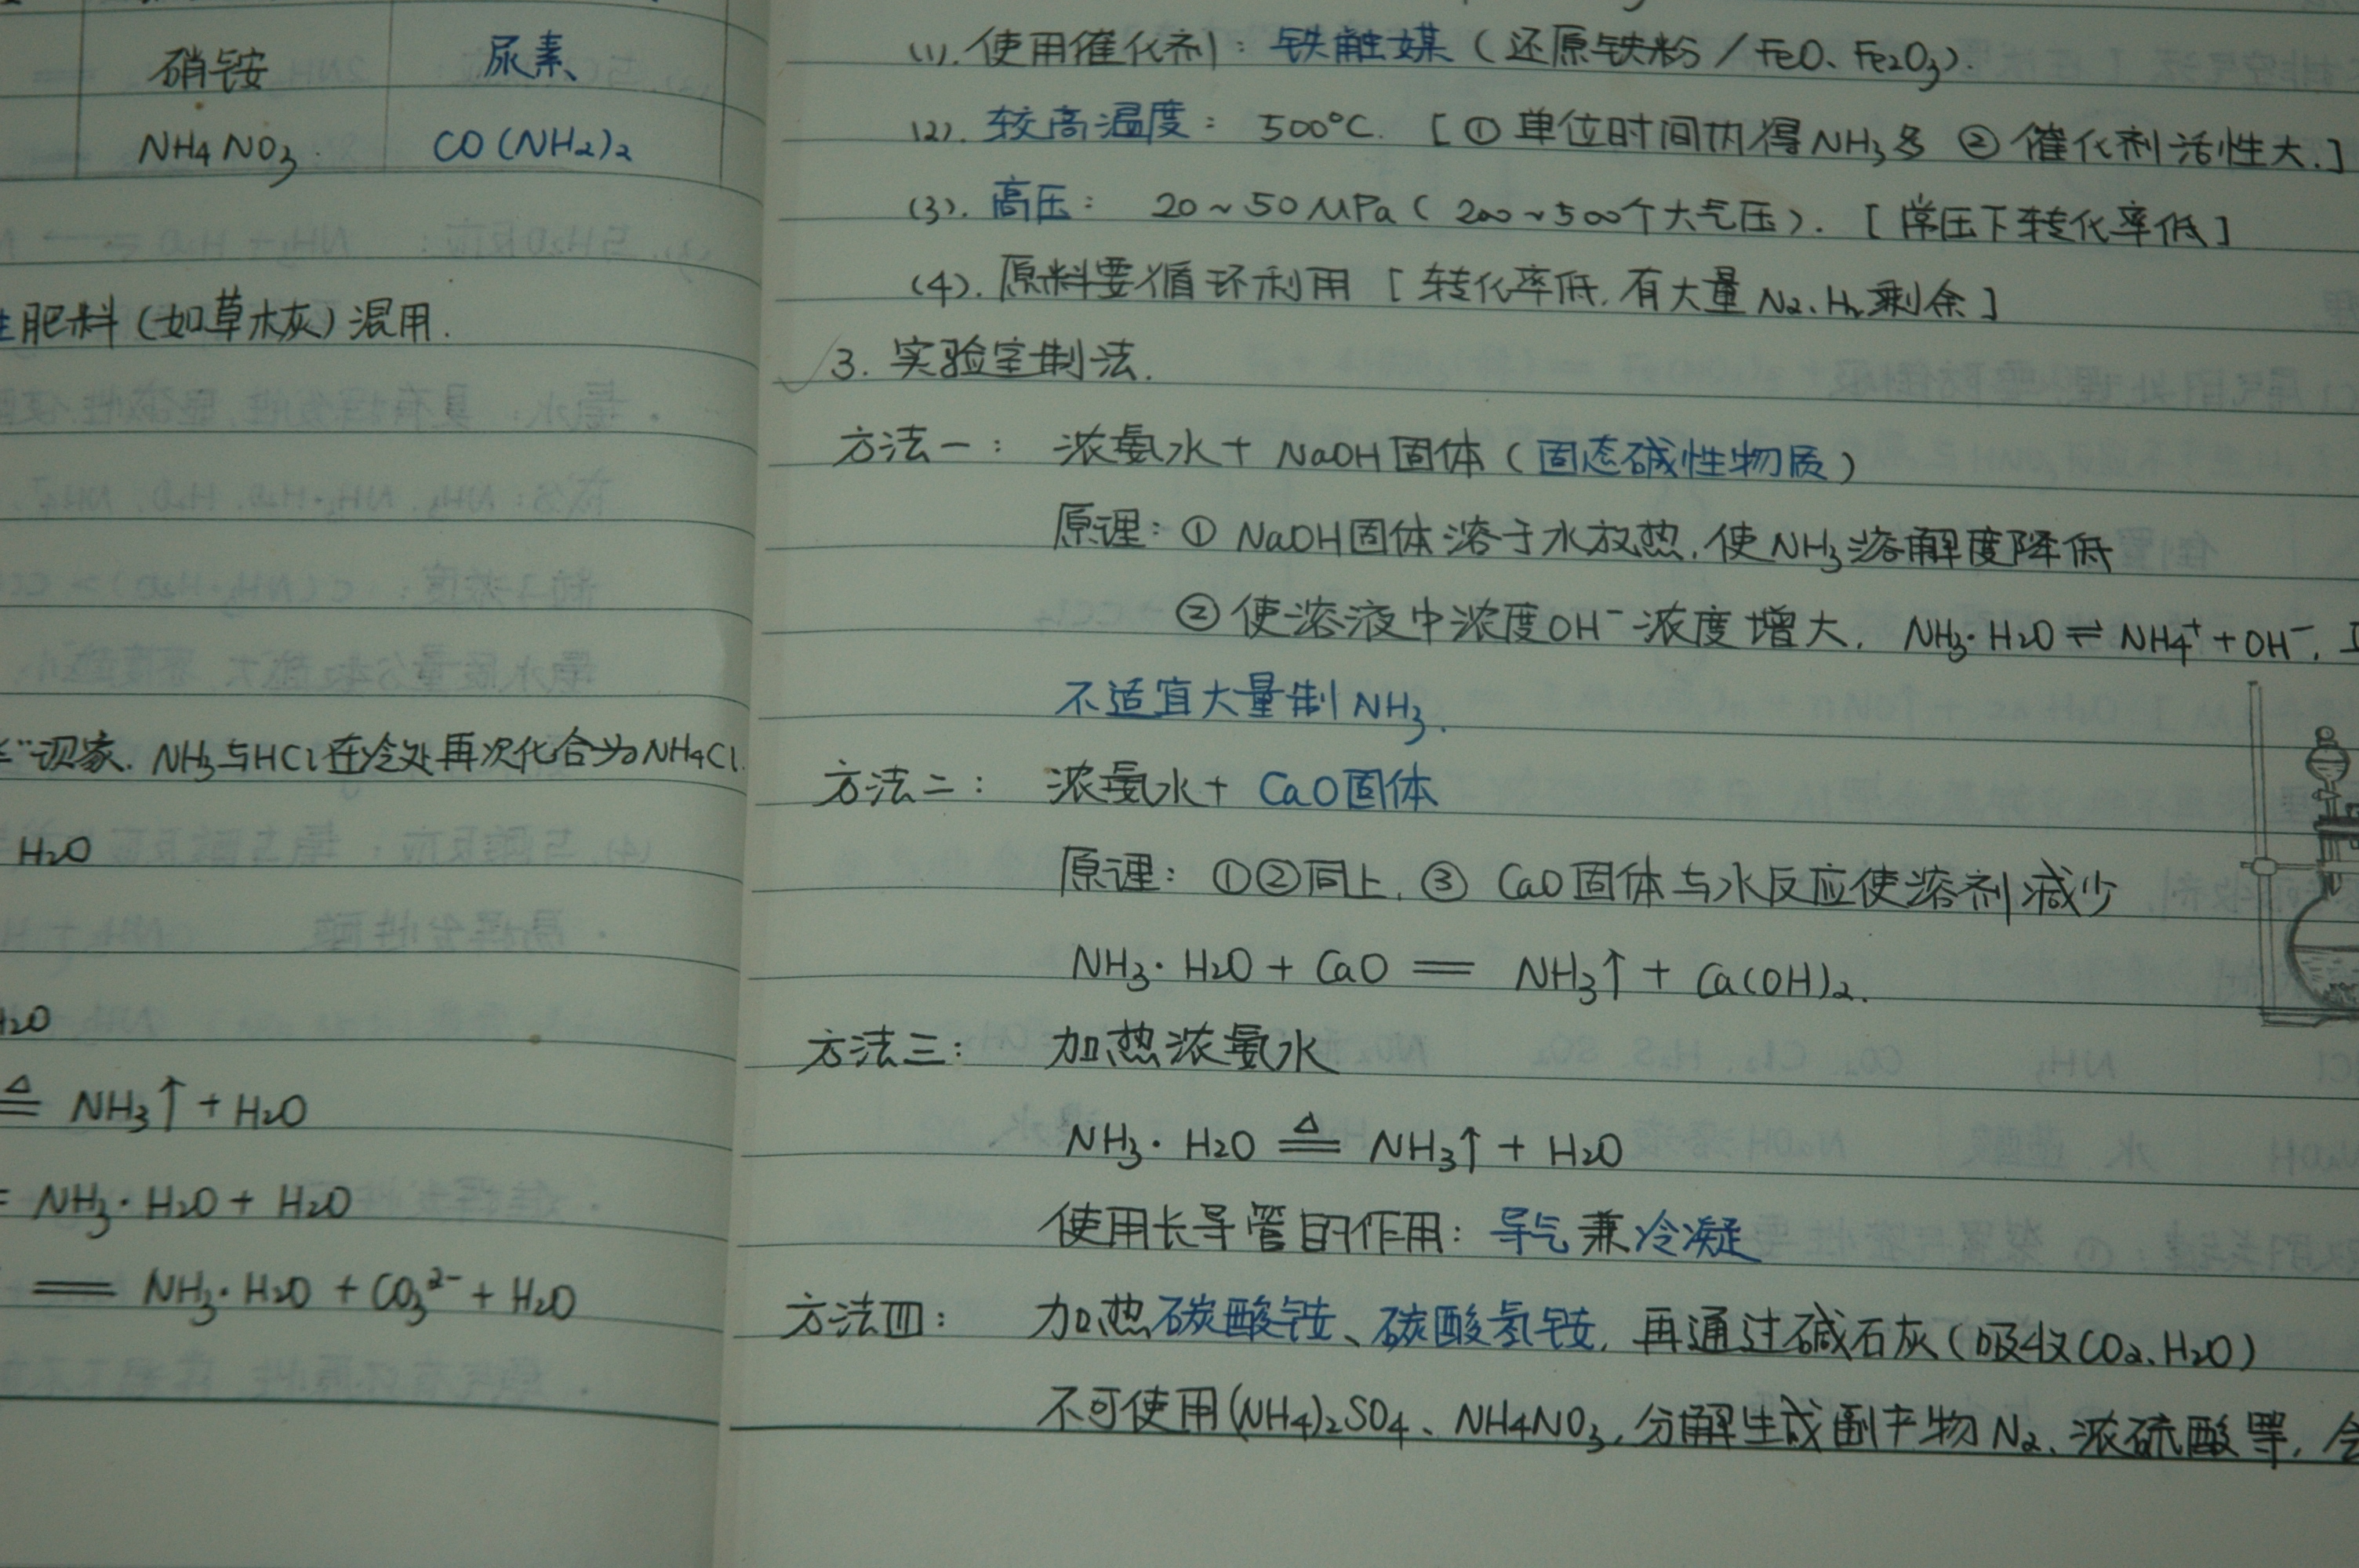 硝铵 尿素
NH4NO3 CO(NH2)2
肥料(如草木灰)混用.
NH3与HCl在冷处再次化合为NH4Cl.
H2O
H2O
≜ NH3↑ + H2O
= NH3·H2O + H2O
== NH3·H2O + CO3²⁻ + H2O
(1). 使用催化剂: 铁触媒 (还原铁粉 / FeO、Fe2O3).
(2). 较高温度: 500°C. [① 单位时间内得NH3多 ② 催化剂活性大.]
(3). 高压: 20~50MPa (200~500个大气压). [常压下转化率低]
(4). 原料要循环利用 [转化率低, 有大量N2、H2剩余]
3. 实验室制法.
方法一: 浓氨水 + NaOH固体 (固态碱性物质)
原理: ① NaOH固体溶于水放热, 使NH3溶解度降低
② 使溶液中浓度OH⁻浓度增大, NH3·H2O ⇌ NH4⁺ + OH⁻,
不适宜大量制NH3.
方法二: 浓氨水 + CaO固体
原理: ①②同上, ③ CaO固体与水反应使溶剂减少
NH3·H2O + CaO == NH3↑ + Ca(OH)2.
方法三: 加热浓氨水
NH3·H2O ≜ NH3↑ + H2O
使用长导管目的作用: 导气兼冷凝
方法四: 加热碳酸铵、碳酸氢铵, 再通过碱石灰(吸收CO2、H2O)
不可使用(NH4)2SO4、NH4NO3, 分解生成副产物N2、浓硫酸等,